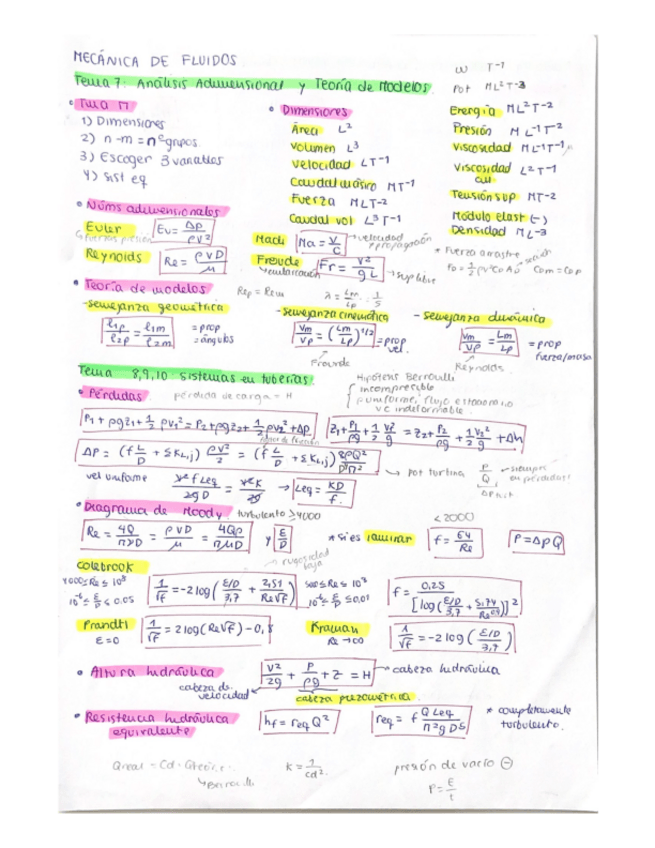 MECÁNICA DE FLUIDOS
Tema 7: Análisis Adimensional y Teoría de Modelos
ω T⁻¹
Pot ML²T⁻³
• Tma π
1) Dimensiones
2) n - m = nº grupos
3) Escoger 3 variables
4) sist eq
• Dimensiones
Área L²
Volumen L³
Velocidad LT⁻¹
Caudal másico MT⁻¹
Fuerza MLT⁻²
Caudal vol L³T⁻¹
Energía ML²T⁻²
Presión ML⁻¹T⁻²
Viscosidad ML⁻¹T⁻¹
Viscosidad L²T⁻¹
cin.
Tensión sup MT⁻²
Módulo elast (-)
Densidad ML⁻³
• Núms adimensionales
Euler Eu = Δp / ρV²
Reynolds Re = ρVD / μ
Mach Ma = V / C
velocidad propagación
Froude Fr = V² / gL
sup libre
* Fuerza arrastre
• Teoría de modelos
Rep = Rem
λ = Lm / Lp
- semejanza geométrica
l1p / l2p = l1m / l2m = prop = ángulos
- semejanza cinemática
Vm / Vp = (Lm / Lp)^1/2 = prop vel.
Froude
- semejanza dinámica
Vm / Vp = Lm / Lp = prop fuerza/masa
Reynolds
Tema 8,9,10 Sistemas en tuberías.
• Pérdidas pérdida de carga = H
Hipótesis Bernoulli
incompresible
ρ uniforme, flujo estacionario
vc indeformable
P1 + ρgz1 + 1/2 ρv1² = P2 + ρgz2 + 1/2 ρv2² + Δp
z1 + P1/ρg + 1/2 v1²/g = z2 + P2/ρg + 1/2 v2²/g + Δh
factor de fricción
ΔP = (f L/D + ΣKL,j) ρV²/2 = (f L/D + ΣKL,j) 8ρQ²/D⁴π²
pot turbina P/Q
siempre en pérdidas!
vel uniforme V² f Leq / 2gD = V² K / 2g → Leq = KD / f
• Diagrama de Moody turbulento ≥ 4000
<2000
Re = 4Q / πνD = ρVD / μ = 4Qρ / πμD y E/D
rugosidad baja
* si es laminar f = 64 / Re
P = Δp Q
Colebrook
4000 ≤ Re ≤ 10⁸
10⁻⁶ ≤ ε/D ≤ 0.05
1/√f = -2 log (E/D / 3,7 + 2,51 / Re√f)
5000 ≤ Re ≤ 10⁸
10⁻⁶ ≤ ε/D ≤ 0.01
f = 0.25 / [log (E/D / 3,7 + 5,74 / Re^0.9)]²
Prandtl
ε = 0
1/√f = 2 log (Re√f) - 0,8
Kraman
Re → ∞
1/√f = -2 log (E/D / 3,7)
• Altura hidráulica V²/2g + P/ρg + z = H → cabeza hidráulica
cabeza de velocidad
cabeza piezométrica
• Resistencia hidráulica equivalente
hf = req Q²
req = f 8 Leq / π² g D⁵
* completamente turbulento.
Qreal = Cd · Qteóric.
Bernoulli
K = 1 / cd²
presión de vacío ⊖
P = E / t